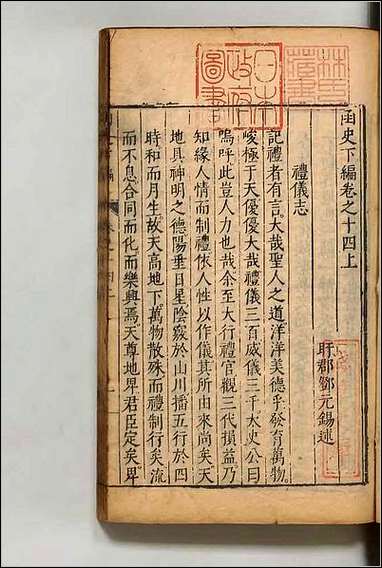 函史下編卷之十四上
盱郡鄧元錫述
禮儀志
記禮者有言大哉聖人之道洋洋美德乎發育萬物
峻極于天優優大哉禮儀三百威儀三千太史公曰
嗚呼此豈人力也哉余至大行禮官觀三代損益乃
知緣人情而制禮依人性以作儀其所由來尚矣天
地具神明之德陽垂日星陰竅於山川播五行於四
時和而月生故天高地下萬物散殊而禮制行矣流
而不息合同而化而樂興焉天尊地卑君臣定矣卑
日本
政府
圖書